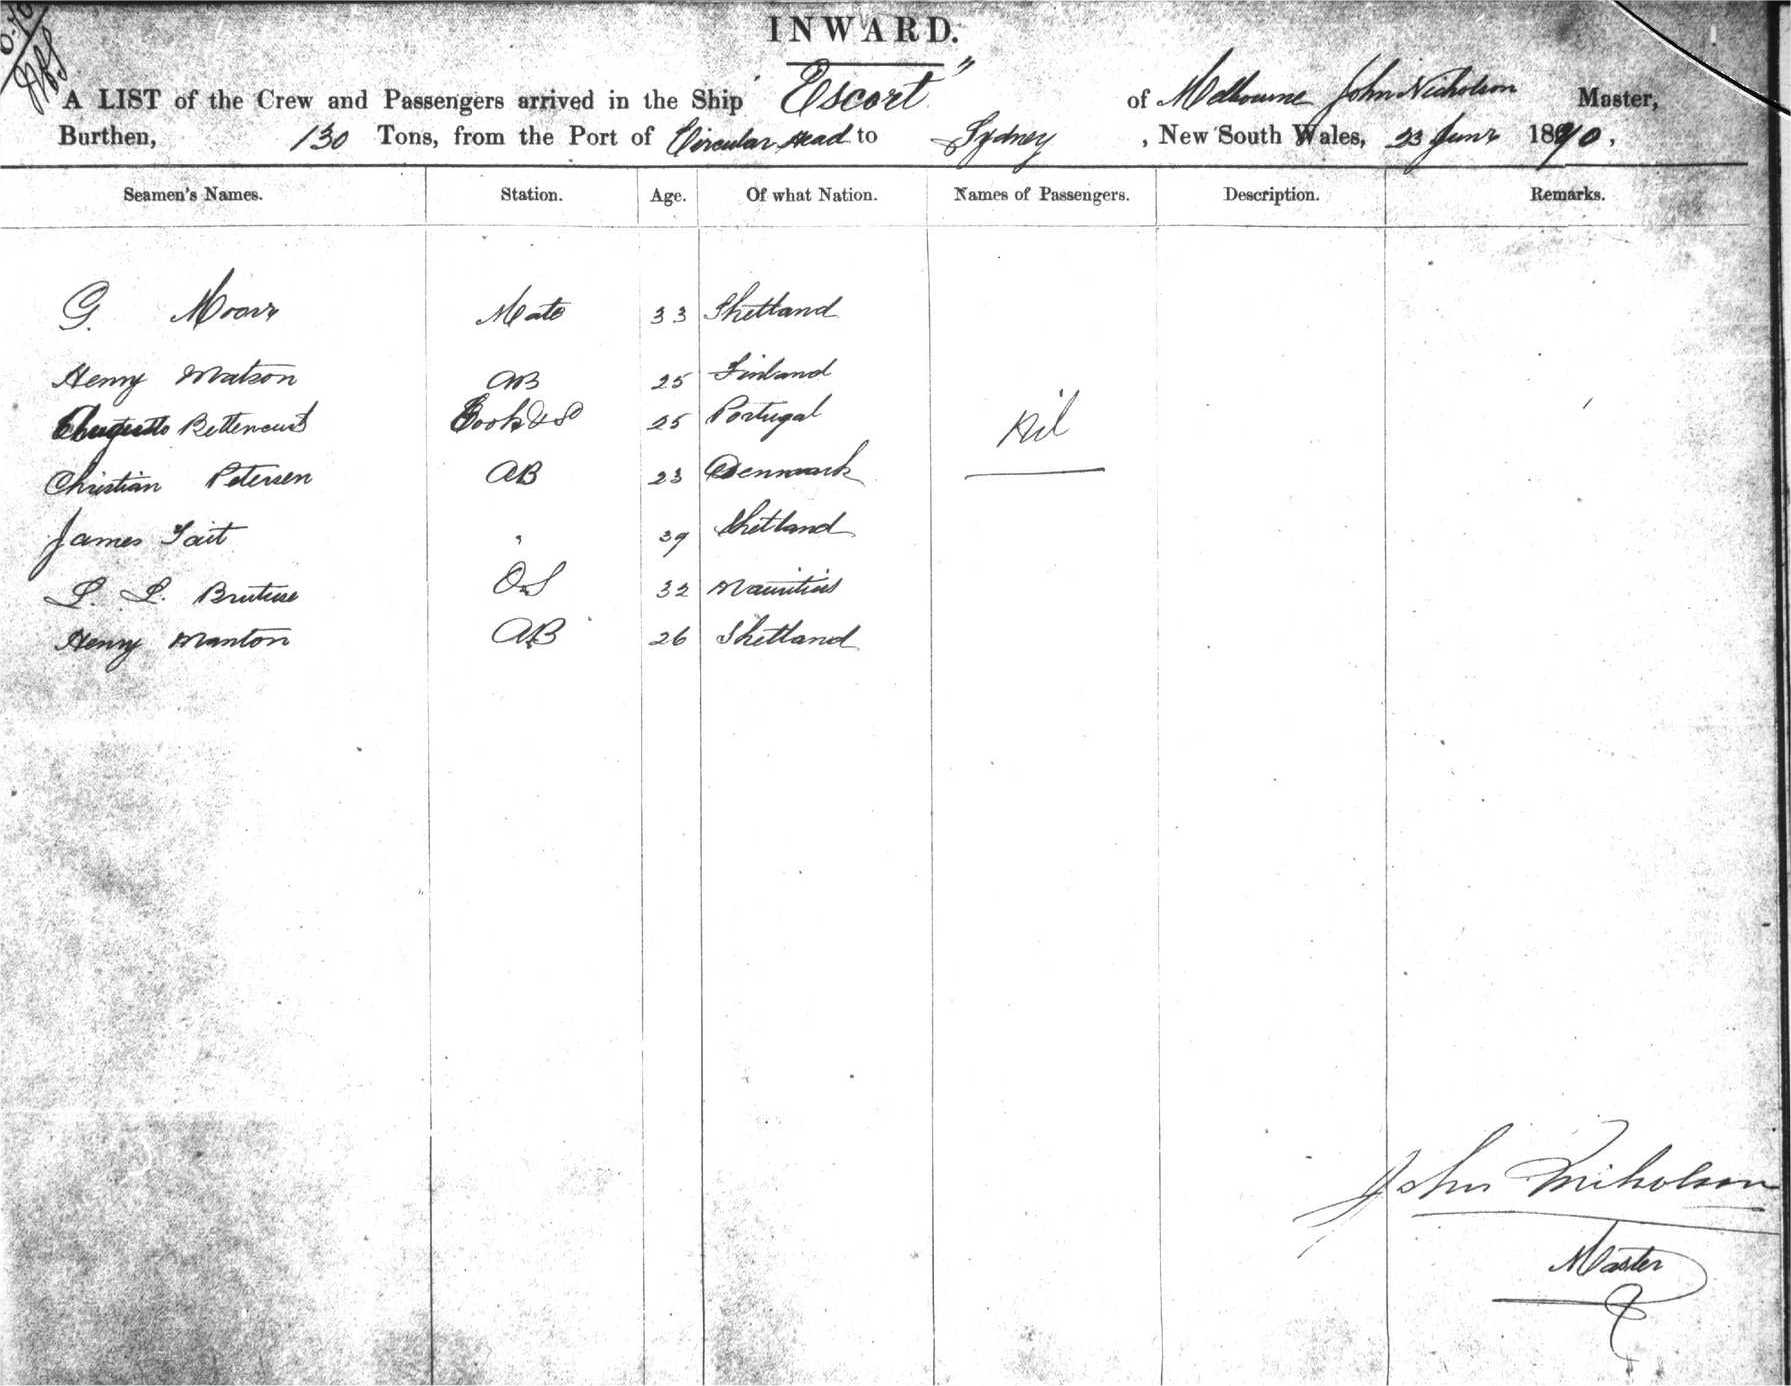 INWARD.
A LIST of the Crew and Passengers arrived in the Ship "Escort" of Melbourne John Nicholson Master,
Burthen, 130 Tons, from the Port of Circular Head to Sydney, New South Wales, 23 June 1890,
Seamen's Names. Station. Age. Of what Nation. Names of Passengers. Description. Remarks.
G. Moar Mate 33 Shetland
Henry Matson AB 25 Finland
Augusto Bettencurt Cook & S 25 Portugal
Nil
Christian Petersen AB 23 Denmark
James Tait " 39 Shetland
L. L. 32 Mauritius
Henry Manton AB 26 Shetland
John Nicholson
Master